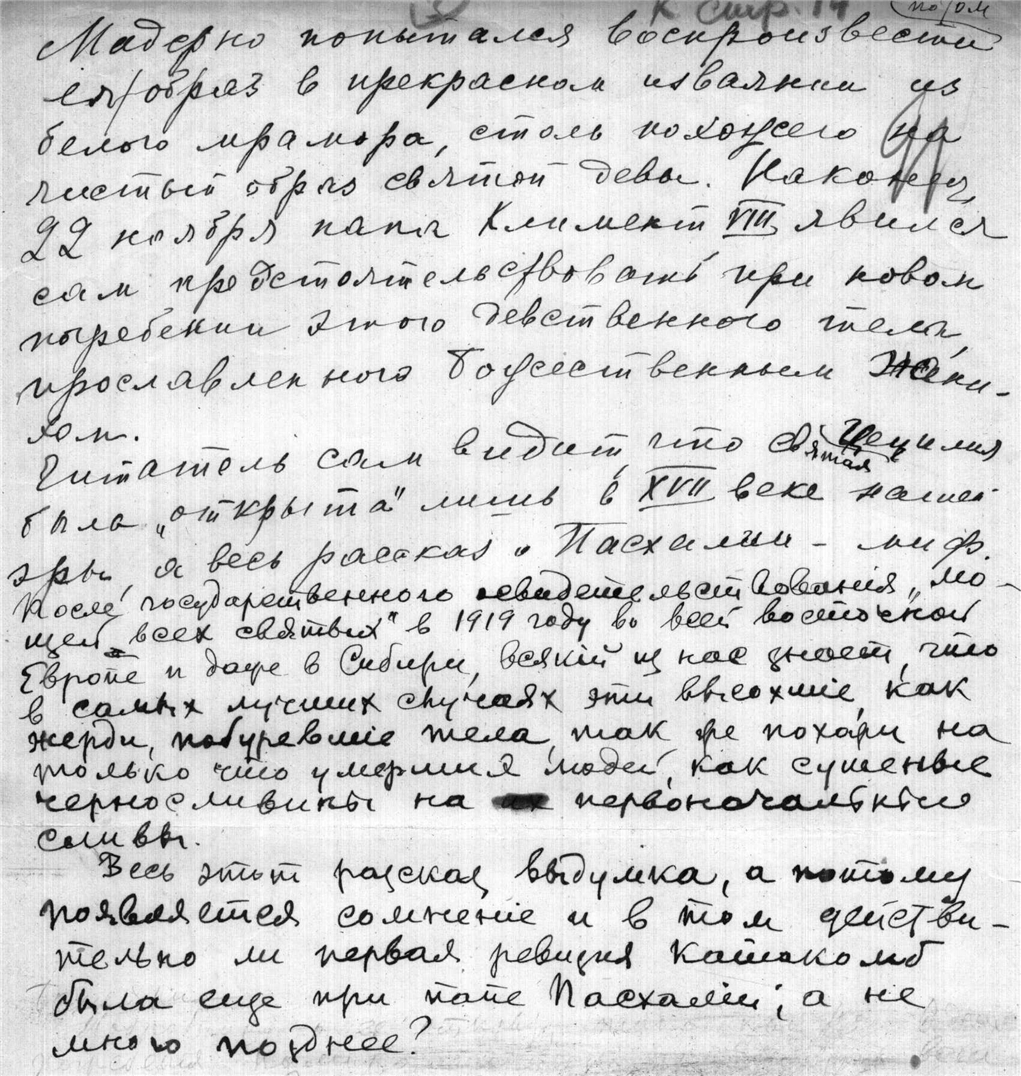 К стр. 14
потом
Мадерно попытался воспроизвести
ея образ в прекрасном изваянии из
белого мрамора, столь похожего на
чистый образ святой девы. Наконец,
22 ноября папа Климент VIII явился
сам предстоятельствовать при новом
погребении этого девственного тела,
прославленного Божественным Жени-
хом.
Читатель сам видит, что святая Цецилия
была „открыта" лишь в XVII веке нашей
эры, а весь рассказ о Пасхалии – миф.
После государственного освидетельствования „мо-
щей всех святых" в 1919 году во всей восточной
Европе и даже в Сибири, всякий из нас знает, что
в самых лучших случаях эти высохшие, как
жерди, побуревшие тела, так же похожи на
только что умерших людей, как сушеные
черносливины на первоначальные
сливы.
Весь этот рассказ выдумка, а потому
появляется сомненіе и в том действи-
тельно ли первая ревизия катакомб
была еще при папе Пасхалии, а не
много позднее?